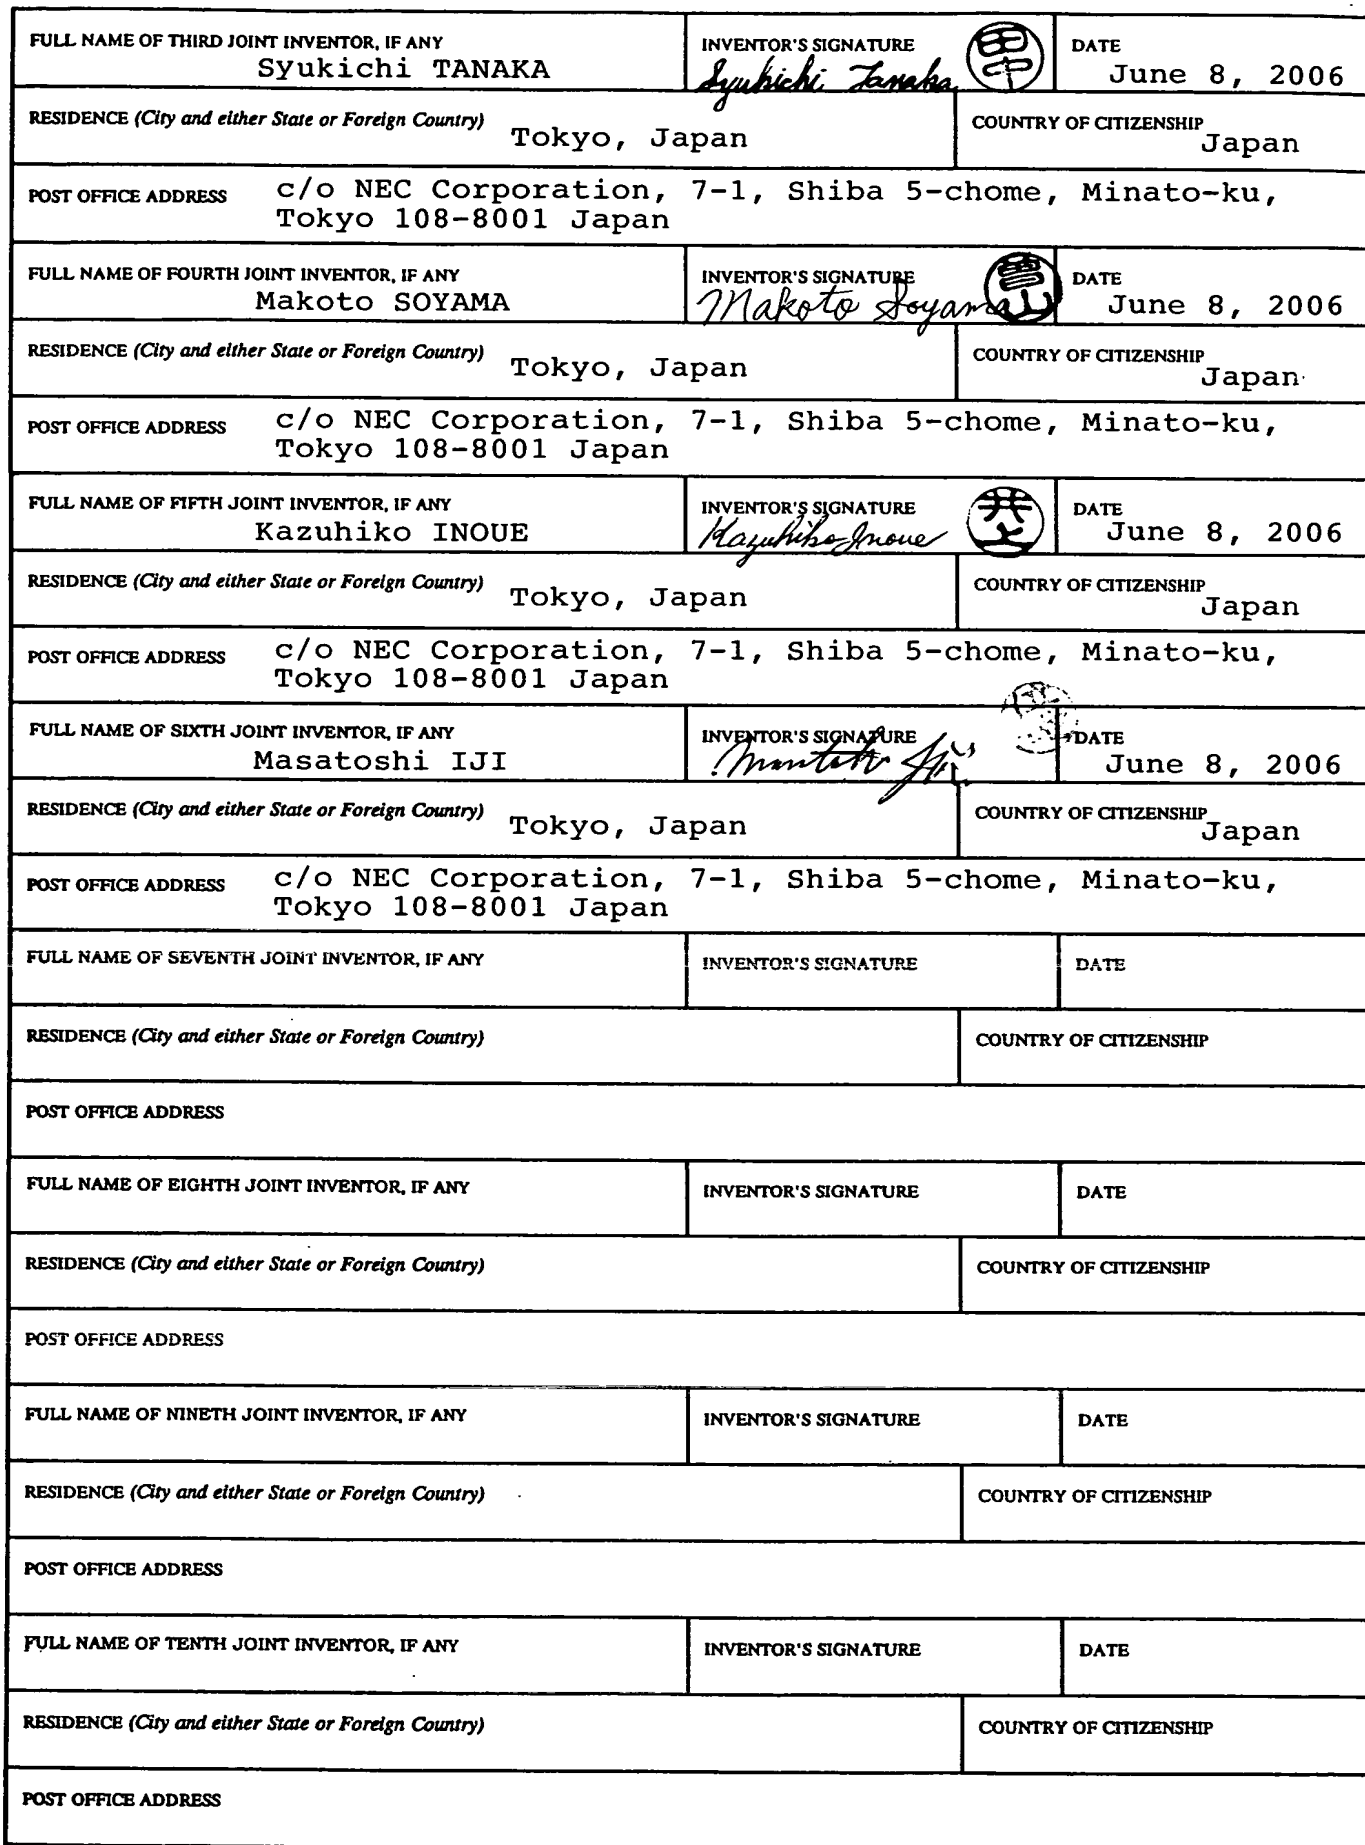 FULL NAME OF THIRD JOINT INVENTOR, IF ANY
Syukichi TANAKA
INVENTOR'S SIGNATURE
Syukichi Tanaka
田中
DATE
June 8, 2006
RESIDENCE (City and either State or Foreign Country)
Tokyo, Japan
COUNTRY OF CITIZENSHIP
Japan
POST OFFICE ADDRESS
c/o NEC Corporation, 7-1, Shiba 5-chome, Minato-ku,
Tokyo 108-8001 Japan
FULL NAME OF FOURTH JOINT INVENTOR, IF ANY
Makoto SOYAMA
INVENTOR'S SIGNATURE
Makoto Soyama
曽山
DATE
June 8, 2006
RESIDENCE (City and either State or Foreign Country)
Tokyo, Japan
COUNTRY OF CITIZENSHIP
Japan
POST OFFICE ADDRESS
c/o NEC Corporation, 7-1, Shiba 5-chome, Minato-ku,
Tokyo 108-8001 Japan
FULL NAME OF FIFTH JOINT INVENTOR, IF ANY
Kazuhiko INOUE
INVENTOR'S SIGNATURE
Kazuhiko Inoue
井上
DATE
June 8, 2006
RESIDENCE (City and either State or Foreign Country)
Tokyo, Japan
COUNTRY OF CITIZENSHIP
Japan
POST OFFICE ADDRESS
c/o NEC Corporation, 7-1, Shiba 5-chome, Minato-ku,
Tokyo 108-8001 Japan
FULL NAME OF SIXTH JOINT INVENTOR, IF ANY
Masatoshi IJI
INVENTOR'S SIGNATURE
Masatoshi Iji
DATE
June 8, 2006
RESIDENCE (City and either State or Foreign Country)
Tokyo, Japan
COUNTRY OF CITIZENSHIP
Japan
POST OFFICE ADDRESS
c/o NEC Corporation, 7-1, Shiba 5-chome, Minato-ku,
Tokyo 108-8001 Japan
FULL NAME OF SEVENTH JOINT INVENTOR, IF ANY
INVENTOR'S SIGNATURE
DATE
RESIDENCE (City and either State or Foreign Country)
COUNTRY OF CITIZENSHIP
POST OFFICE ADDRESS
FULL NAME OF EIGHTH JOINT INVENTOR, IF ANY
INVENTOR'S SIGNATURE
DATE
RESIDENCE (City and either State or Foreign Country)
COUNTRY OF CITIZENSHIP
POST OFFICE ADDRESS
FULL NAME OF NINETH JOINT INVENTOR, IF ANY
INVENTOR'S SIGNATURE
DATE
RESIDENCE (City and either State or Foreign Country)
COUNTRY OF CITIZENSHIP
POST OFFICE ADDRESS
FULL NAME OF TENTH JOINT INVENTOR, IF ANY
INVENTOR'S SIGNATURE
DATE
RESIDENCE (City and either State or Foreign Country)
COUNTRY OF CITIZENSHIP
POST OFFICE ADDRESS